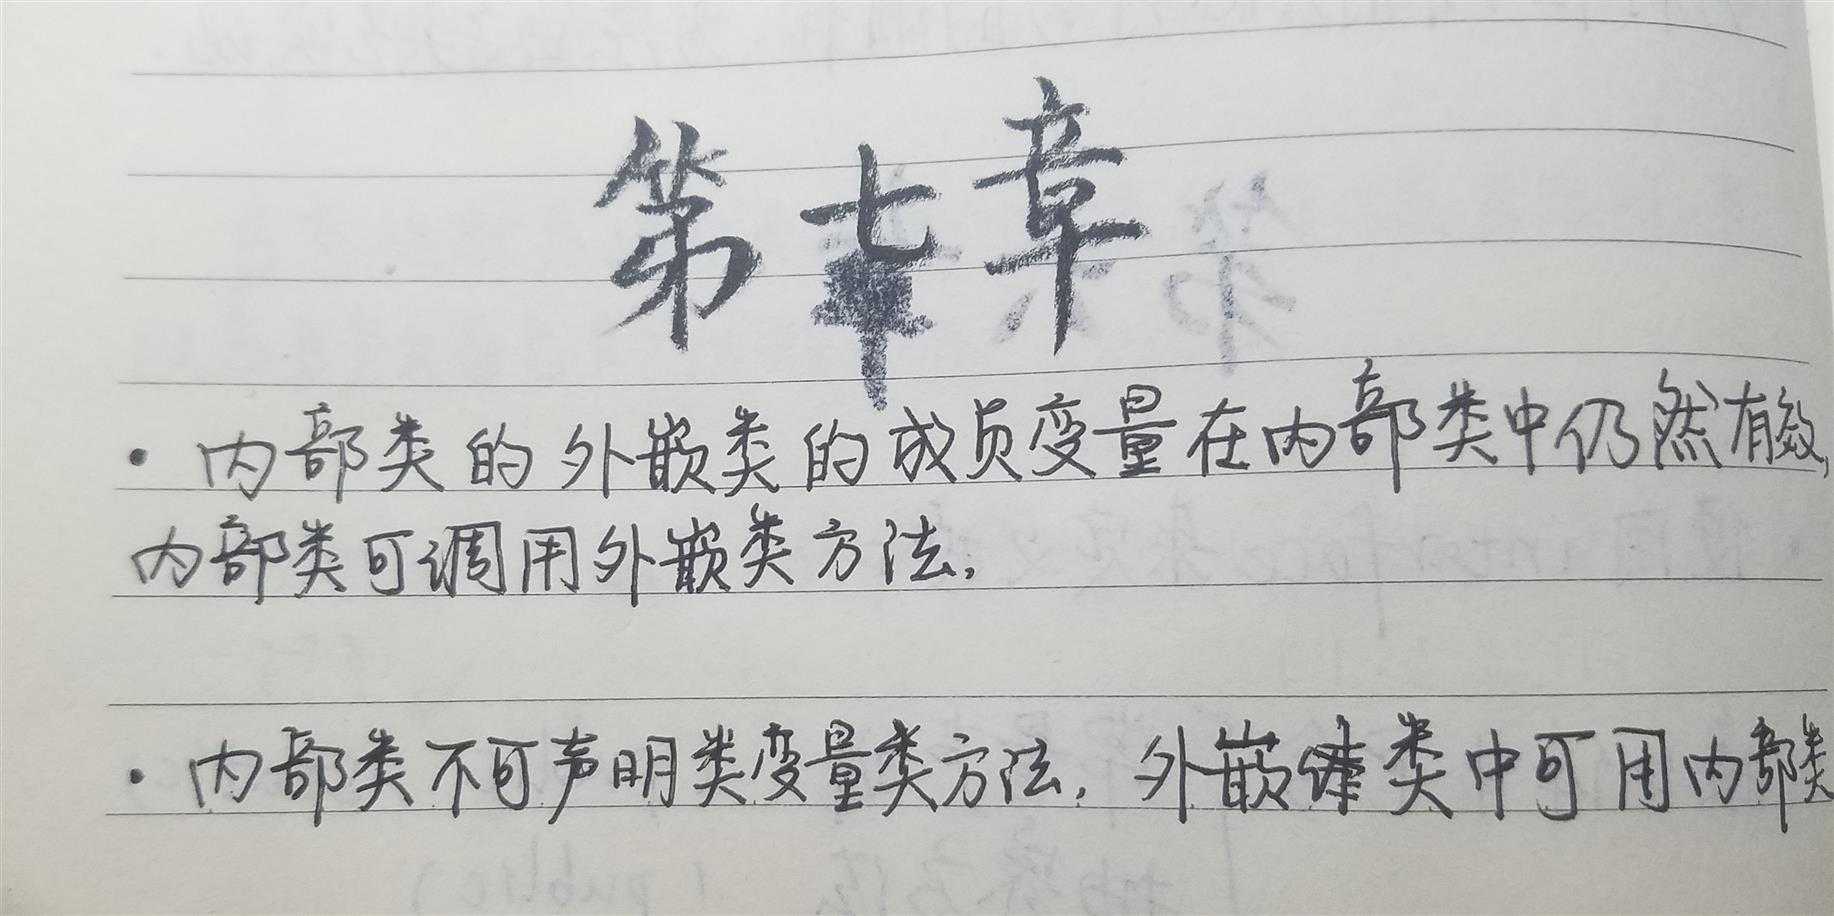 第七章
·内部类的外嵌类的成员变量在内部类中仍然有效,
内部类可调用外嵌类方法.
·内部类不可声明类变量类方法. 外嵌类中可用内部类